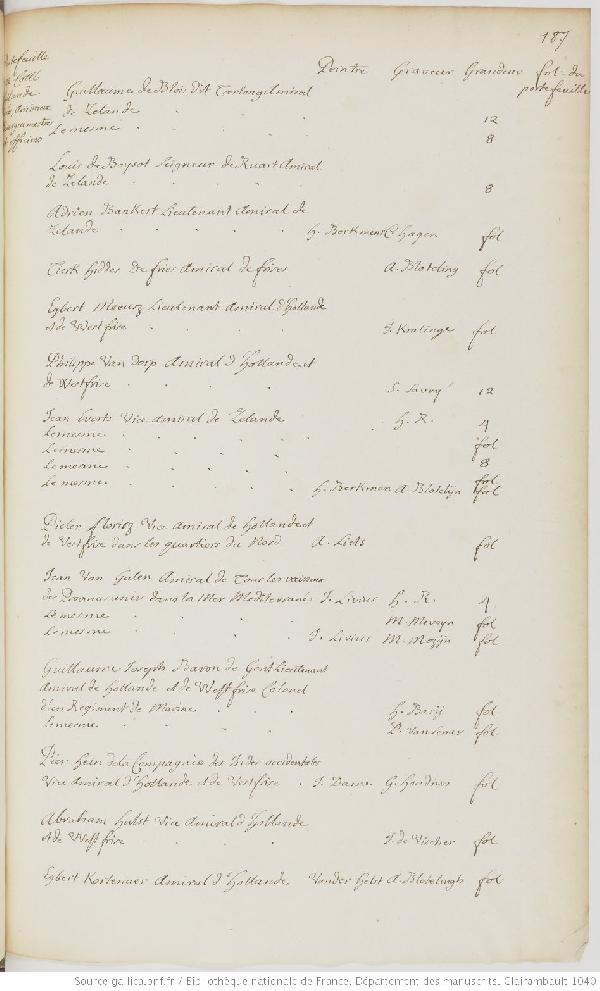 187
Peintre Graveur Grandeur fol. du
portefeuille
Guillaume de Blois dit Amiral
de Zelande 12
Lemesme 8
Louis de Boysot Seigneur de Ruart Amiral
de Zelande 8
Adrien Bankert Lieutenant Amiral de
Zelande H. Berkmen C Hagen fol
Tierk hiddes de fries Amiral de frise A. Bloteling fol
Egbert Meeusz Lieutenant Amiral d'Hollande
et de Westfrise J. Kralinge fol
Philippe Van Dorp Amiral d'Hollande et
de Westfrise S. Savry 12
Jean Everts Vice Amiral de Zelande H. R. 4
Lemesme fol
Lemesme 8
Lemesme fol
Lemesme H. Berkmen A Blotelyn fol
Pieter florisz Vice Amiral de Hollande et
de Westfrise dans les quartiers du Nord A. Liets fol
Jean Van Galen Amiral de Tous les vaisseaux
des Provinces unies dans la Mer Mediterranée J. Livius H. R. 4
Lemesme M. Mouzyn fol
Lemesme J. Livius M. Mozijn fol
Guillaume Joseph Baron de Gent Lieutenant
Amiral de Hollande et de Westfrise Colonel
d'un Regiment de Marine H. Barij fol
Lemesme D. Van fol
Pier hein de la Compagnie des Indes occidentales
Vice Amiral d'Hollande et de Westfrise J. Dame G. fol
Abraham hulst Vice Amiral d'Hollande
et de Westfrise J. de Vischer fol
Egbert Kortenaer Amiral d'Hollande Vander Helst A. Blotelingh fol
Source gallica.bnf.fr / Bibliothèque nationale de France. Département des manuscrits. Clairambault 1040